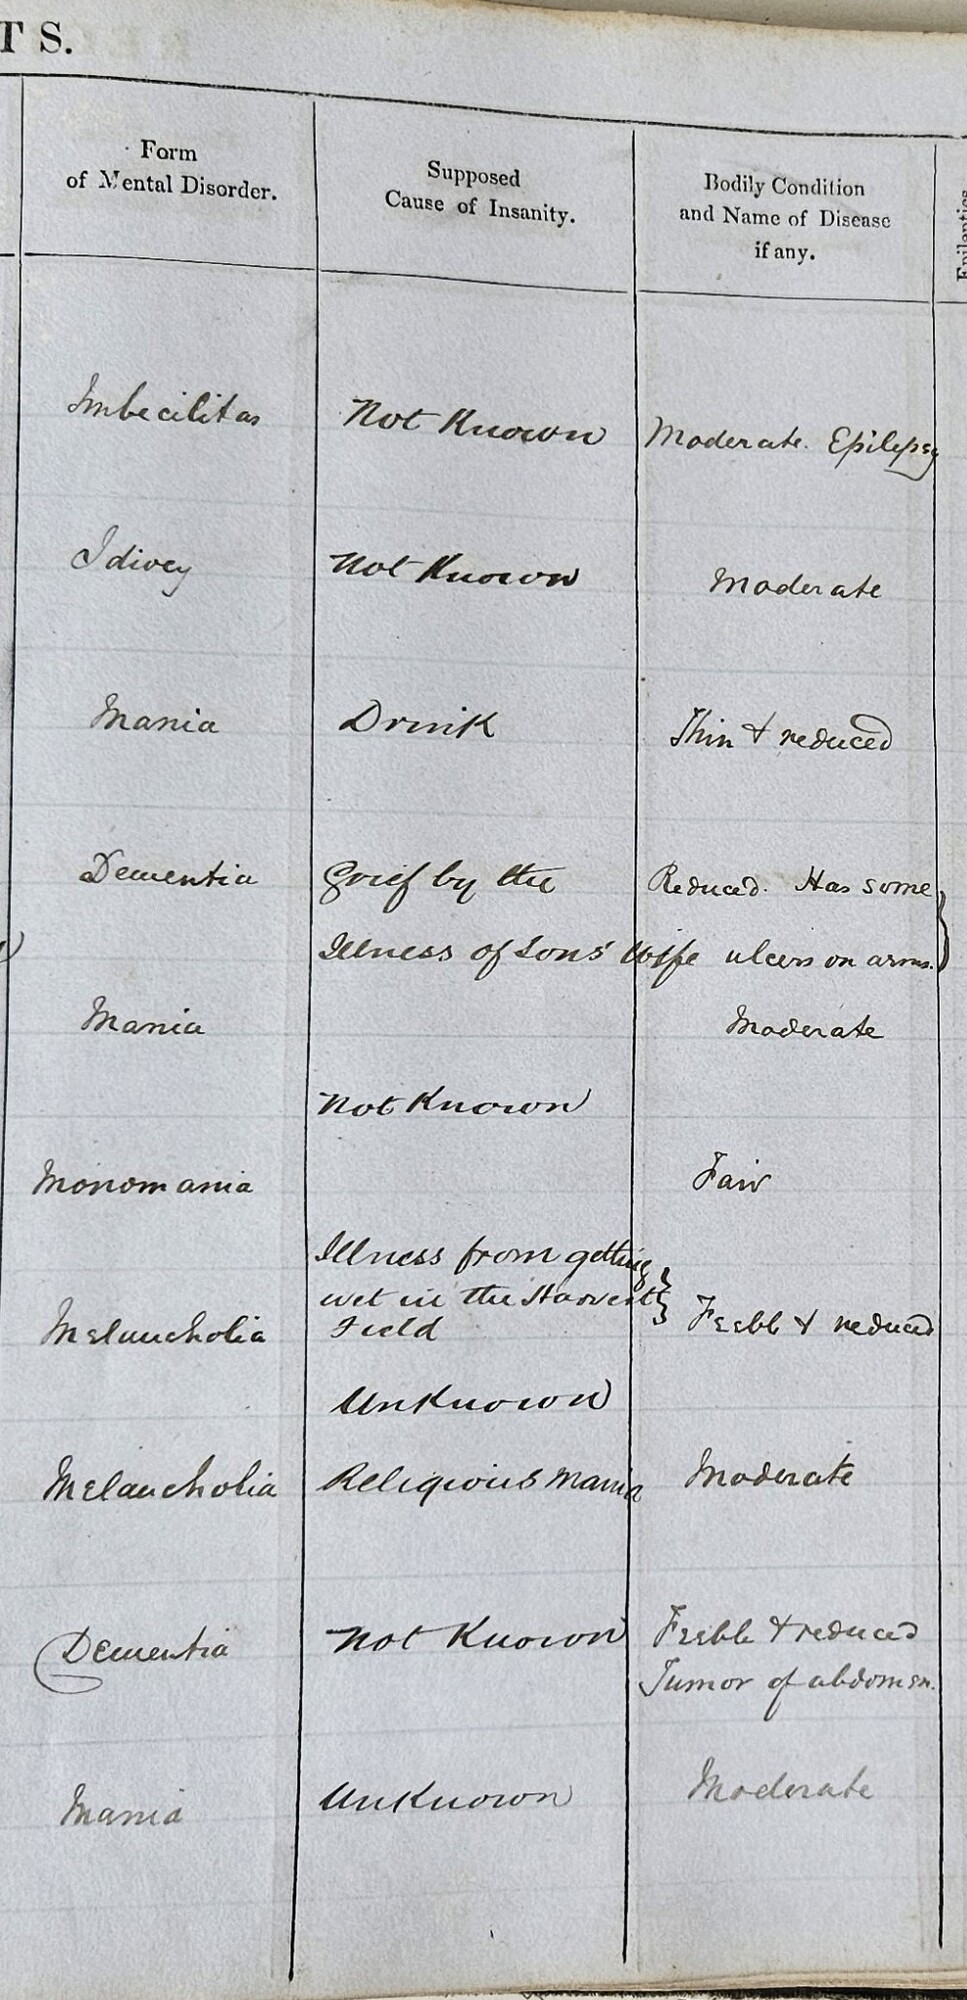 TS.
Form
of Mental Disorder.
Supposed
Cause of Insanity.
Bodily Condition
and Name of Disease
if any.
Epileptics
Imbecilitas
Not Known
Moderate. Epilepsy
Idiocy
Not Known
Moderate
Mania
Drink
Thin & reduced
Dementia
Grief by the
Illness of Sons' Wife
Reduced. Has some
ulcers on arms.
Mania
Not Known
Moderate
Monomania
Illness from getting
wet in the Harvest
Field
Fair
Melancholia
Unknown
Feeble & reduced
Melancholia
Religious Mania
Moderate
Dementia
Not Known
Feeble & reduced
Tumor of abdomen.
Mania
Unknown
Moderate